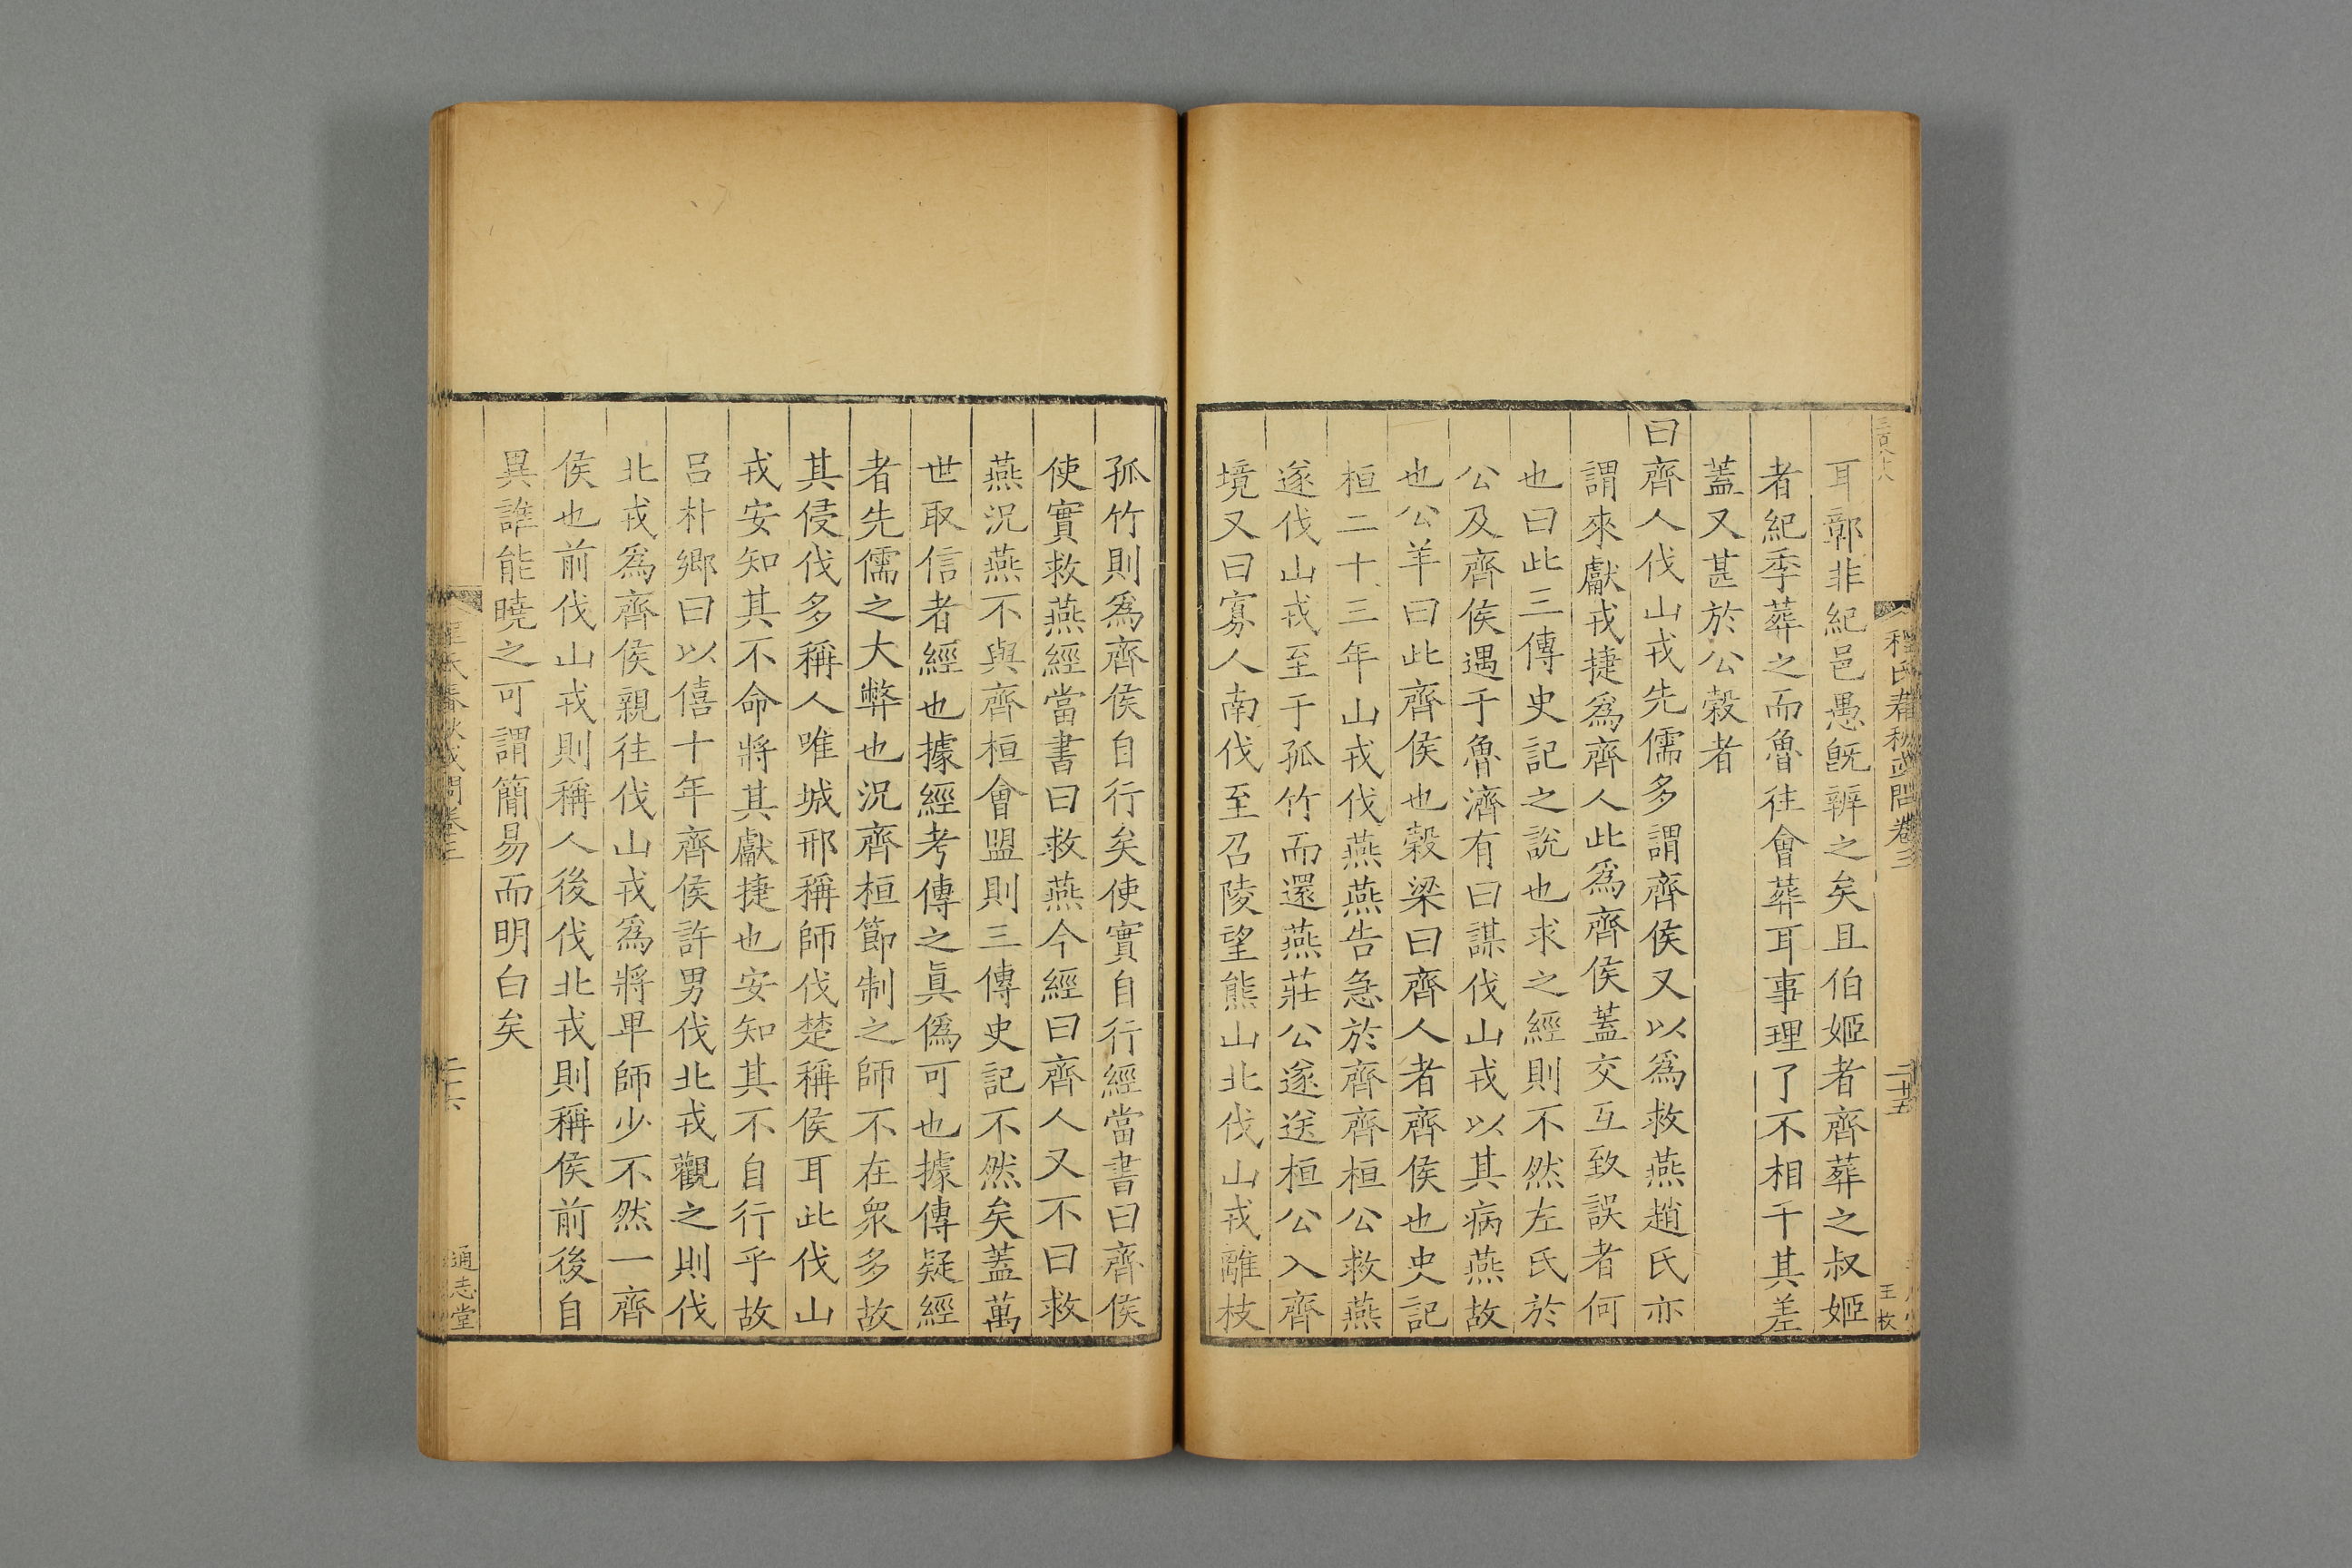 程氏春秋或問卷三
二十五
耳鄣非紀邑愚旣辨之矣且伯姬者齊葬之叔姬
者紀季葬之而魯往會葬耳事理了不相干其差
蓋又甚於公穀者
曰齊人伐山戎先儒多謂齊侯又以爲救燕趙氏亦
謂來獻戎捷爲齊人此爲齊侯蓋交互致誤者何
也曰此三傳史記之說也求之經則不然左氏於
公及齊侯遇于魯濟有曰謀伐山戎以其病燕故
也公羊曰此齊侯也穀梁曰齊人者齊侯也史記
桓二十三年山戎伐燕燕告急於齊齊桓公救燕
遂伐山戎至于孤竹而還燕莊公遂送桓公入齊
境又曰寡人南伐至召陵望熊山北伐山戎離枝
孤竹則爲齊侯自行矣使實自行經當書曰齊侯
使實救燕經當書曰救燕今經曰齊人又不曰救
燕況燕不與齊桓會盟則三傳史記不然矣蓋萬
世取信者經也據經考傳之眞僞可也據傳疑經
者先儒之大弊也況齊桓節制之師不在衆多故
其侵伐多稱人唯城邢稱師伐楚稱侯耳此伐山
戎安知其不命將其獻捷也安知其不自行乎故
呂朴鄉曰以僖十年齊侯許男伐北戎觀之則伐
北戎爲齊侯親往伐山戎爲將卑師少不然一齊
侯也前伐山戎則稱人後伐北戎則稱侯前後自
異誰能曉之可謂簡易而明白矣
程氏春秋或問卷三
二十六
通志堂